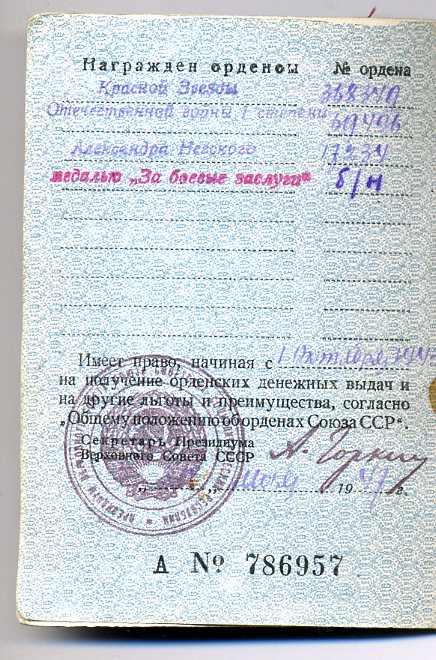 Награжден орденом № ордена
Красной Звезды
Отечественной войны I степени
Александра Невского 17734
медалью „За боевые заслуги“ б/н
Имеет право, начиная с 1 Октября 1947
на получение орденских денежных выдач и
на другие льготы и преимущества, согласно
„Общему положению об орденах Союза ССР“.
Секретарь Президиума
Верховного Совета СССР А. Горкин
19 47 г.
А № 786957